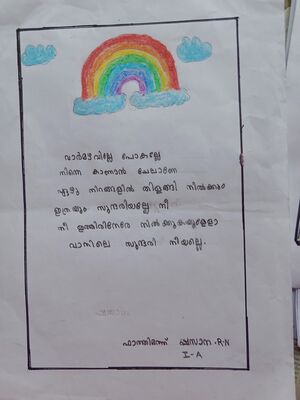 വാർമഴവില്ലേ പോകല്ലേ
നിന്നെ കാണാൻ ചേലാണേ
ഏഴു നിറങ്ങളിൽ തിളങ്ങി നിൽക്കും
ഇത്രയും സുന്ദരിയല്ലേ നീ
നീ ഇത്തിരിനേരേ നിൽക്കുകയുള്ളോ
വാനിലെ സുന്ദരി നീയല്ലെ.
ഫാത്തിമത്ത് ഷസാന .R.N
I-A